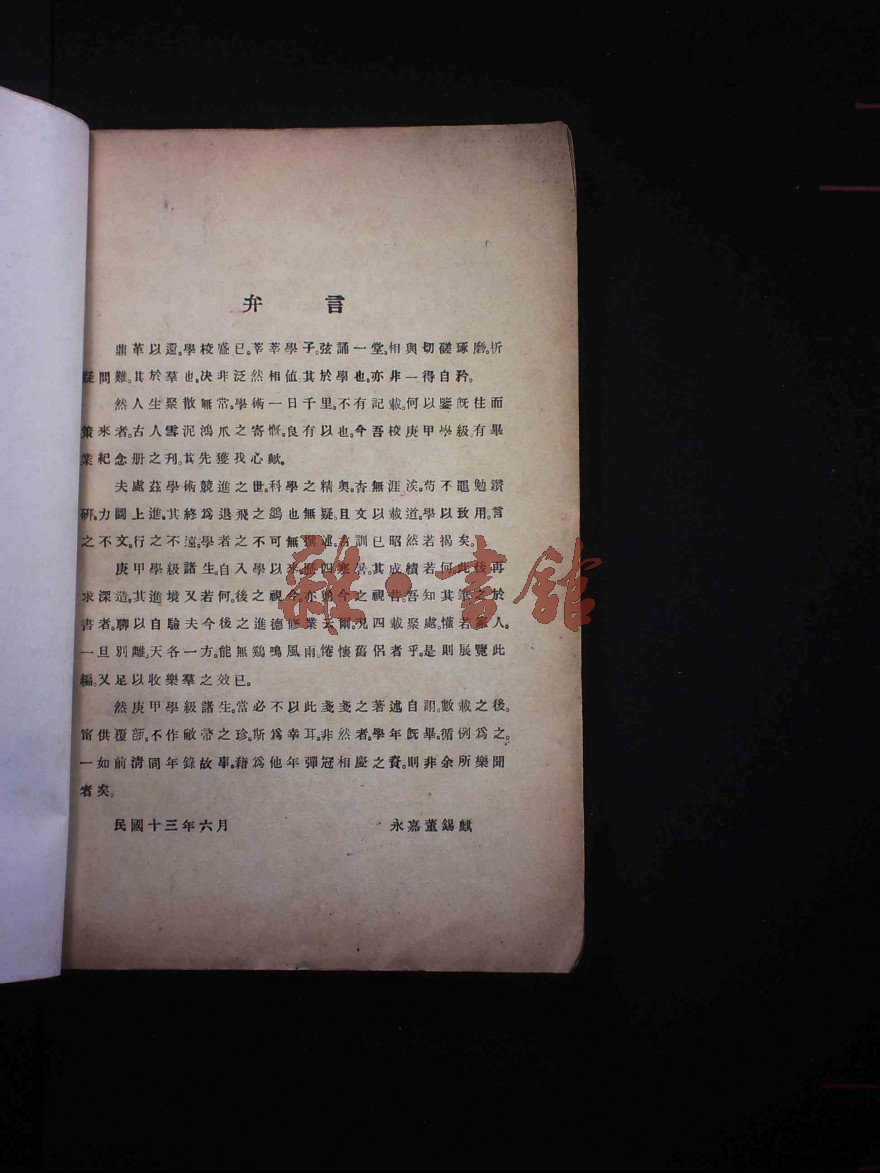 弁言
鼎革以還。學校盛已。莘莘學子。弦誦一堂。相與切磋琢磨。析
疑問難。其於羣也。决非泛然相値。其於學也。亦非一得自矜。
然人生聚散無常。學術一日千里。不有記載。何以鑒旣往而
策來者。古人雪泥鴻爪之寄慨。良有以也。今吾校庚甲學級有畢
業紀念册之刊。其先獲我心歟。
夫處茲學術競進之世。科學之精奧。杳無涯涘。苟不黽勉鑽
研。力圖上進。其終爲退飛之鷁也無疑。且文以載道。學以致用。言
之不文。行之不遠。學者之不可無撰述。古訓已昭然若揭矣。
庚甲學級諸生。自入學以來。歷四寒暑。其成績若何。此後再
求深造。其進境又若何。後之視今。亦猶今之視昔。吾知其筆之於
書者。聊以自驗夫今後之進德修業云爾。况四載聚處。懽若家人。
一旦別離。天各一方。能無鷄鳴風雨。惓懷舊侶者乎。是則展覽此
編。又足以收樂羣之效已。
然庚甲學級諸生。當必不以此戔戔之著述自詡。數載之後。
甯供覆瓿。不作敝帚之珍。斯爲幸耳。非然者。學年旣畢。循例爲之。
一如前淸同年錄故事。藉爲他年彈冠相慶之資。則非余所樂聞
者矣。
民國十三年六月 永嘉董錫麒
雜·書館